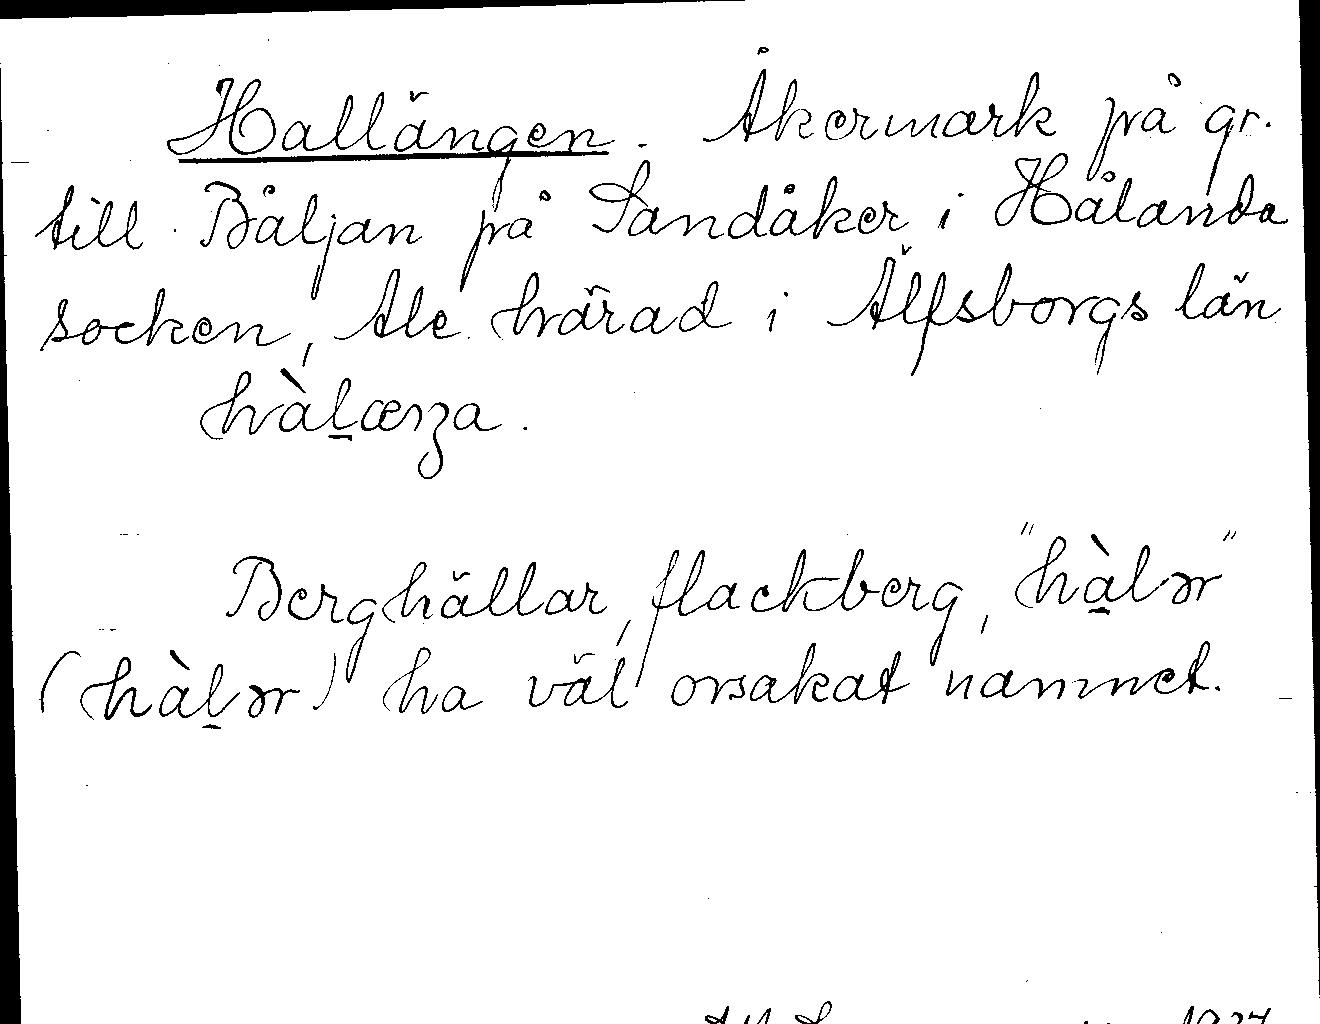 Hallängen. Åkermark på gr.
till Båljan på Sandåker i Hålanda
socken, Ale härad i Älfsborgs län
hàḻæŋa.
Berghällar, flackberg, "hàlər"
(hàḻər) ha väl orsakat namnet.